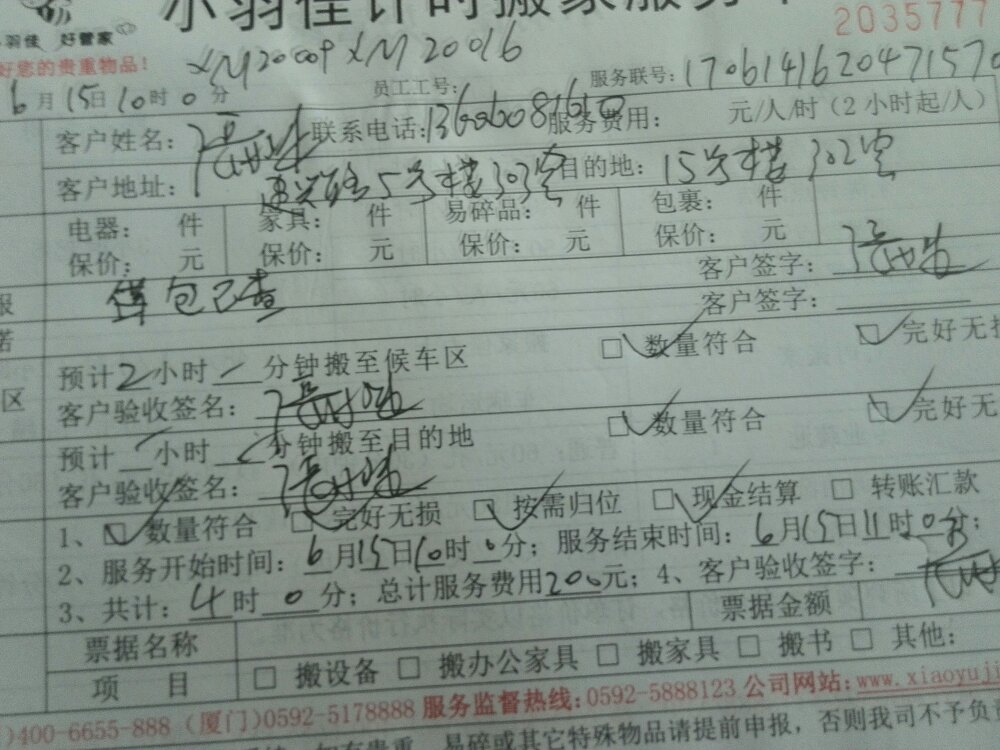 小羽佳计时搬家服务
2035777
羽佳 好管家
好您的贵重物品!
XM20009 XM20016
员工工号: 服务联号: 1706141620471570
6月15日10时0分
客户姓名: 联系电话: 服务费用: 元/人/时(2小时起/人)
客户地址: 5号楼303室 目的地: 15号楼302室
电器: 件 家具: 件 易碎品: 件 包裹: 件
保价: 元 保价: 元 保价: 元 保价: 元
客户签字:
包已查 客户签字:
预计2小时 分钟搬至候车区 数量符合 完好无损
客户验收签名:
预计 小时 分钟搬至目的地 数量符合 完好无
客户验收签名:
1、 数量符合 完好无损 按需归位 现金结算 转账汇款
2、服务开始时间: 6月15日10时0分; 服务结束时间: 6月15日11时0分;
3、共计: 4时0分; 总计服务费用200元; 4、客户验收签字:
票据名称 票据金额
项 目 搬设备 搬办公家具 搬家具 搬书 其他:
)400-6655-888 (厦门)0592-5178888 服务监督热线:0592-5888123 公司网站:www.xiaoyujj
易碎或其它特殊物品请提前申报, 否则我司不予负责